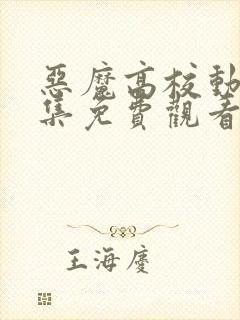 惡魔高校動
集免費觀看
王海慶